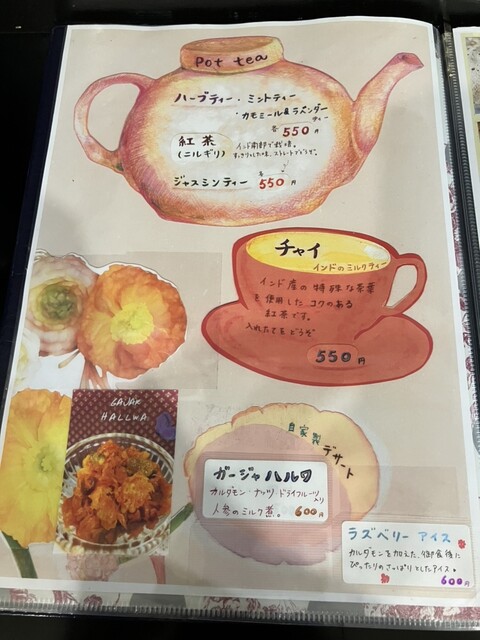 Pot tea
ハーブティー・ミントティー
・カモミール&ラベンダーティー
各550円
紅茶
(ニルギリ)
インド南部で栽培。
すっきりした味、ストレートでどうぞ。
ジャスミンティー 550円
チャイ
インドのミルクティ
インド産の特殊な茶葉
を使用したコクのある
紅茶です。
入れたてをどうぞ
550円
GAJAR
HALLWA.
自家製
デザート
ガージャハルワ
カルダモン・ナッツ・ドライフルーツ入り
人参のミルク煮。600円
ラズベリーアイス
カルダモンを加えた、御食後に
ぴったりのさっぱりとしたアイス。
600円